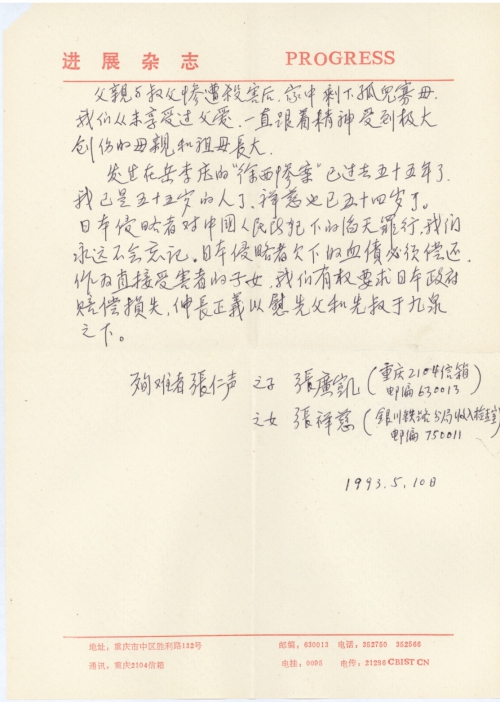 进展杂志 PROGRESS
父親与叔父惨遭殺害后，家中剩下孤兒寡母，
我们从未享受过父爱，一直跟着精神受到极大
创伤的母親和祖母長大。
发生在岳李庄的“徐西惨案”已过去五十五年了，
我已是五十五岁的人了，祥慈也已五十四岁了。
日本侵略者对中国人民所犯下的滔天罪行，我们
永远不会忘记。日本侵略者欠下的血債必须偿还，
作为直接受害者的子女，我们有权要求日本政府
赔偿损失，伸長正義以慰先父和先叔于九泉
之下。
殉难者張仁声 之子 張廣凱（重庆2104信箱
邮编630013）
之女 張祥慈（銀川铁路分局收入检查室
邮编750011
1993.5.10日
地址：重庆市中区胜利路132号 邮编：630013 电话：352750 352566
通讯：重庆2104信箱 电挂：0095 电传：21286 CBIST CN